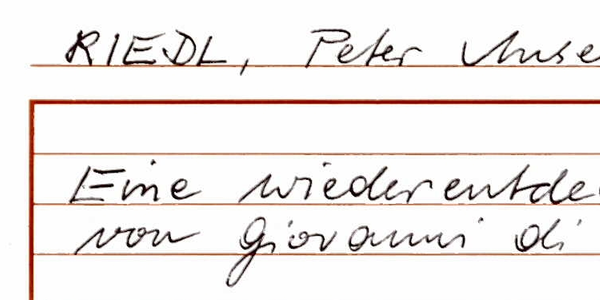 RIEDL, Peter Anse
Eine wiederentde
von Giovanni di